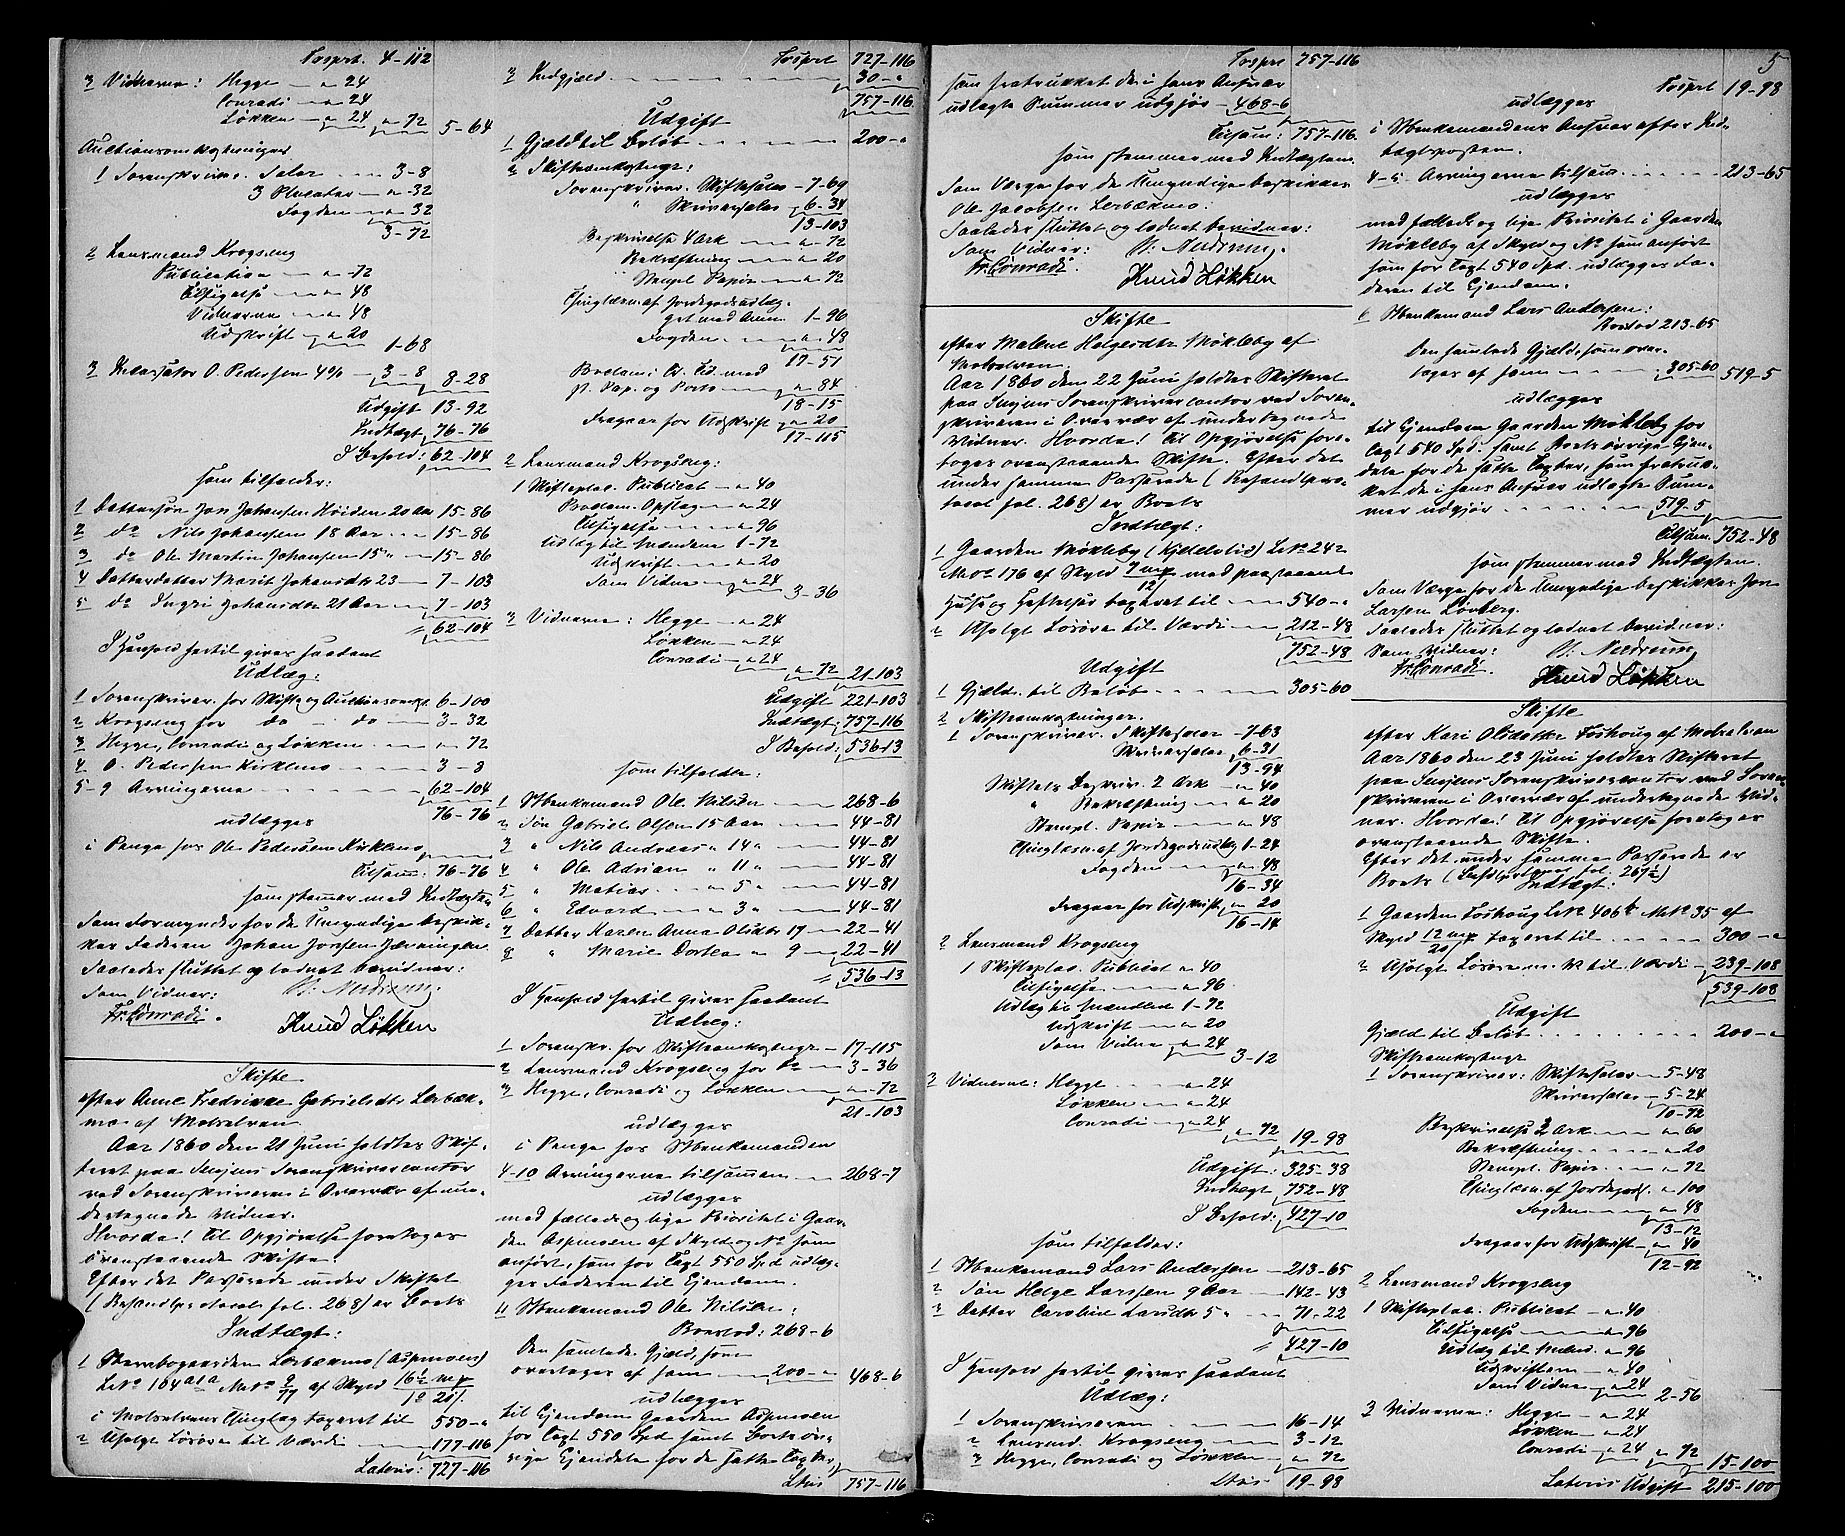 Tosprt. 4-112
3 Vidnerne: Hegge — „ 24
Conradi — „ 24
Løkken — „ 24 „ 72 5-64
Auctionsomkostninger
1 Sorenskriver. Salær 3-8
3 Plakater — „ 32
Fogden — „ 32
3-72
2 Lensmand Krogseng
Publication — „ 72
Tilsigelse — „ 48
Vidnerne — „ 48
Udskrift — „ 20
1-68
3 Incassator O. Pedersen 4% — 3-8 8-28
Udgift 13-92
Indtægt 76-76
I Behold: 62-104
som tilfalder:
1 Dattersøn Jon Johansen Høiden 20 Aar 15-86
2 do Nils Johansen 18 Aar — 15-86
3 do Ole Martin Johansen 15 „ — 15-86
4 Datterdatter Marit Johansdtr 23 — 7-103
5 do Ingri Johansdtr 21 Aar — 7-103
= 62-104
I Henhold hertil gives saadant
Udlæg:
1 Sorenskriver. for Skifte og Auctionsomk. 6-100
2 Krogseng for do - do — 3-32
3 Hegge, Conradi og Løkken — „ 72
4 O. Pedersen Kirkemo — 3-8
5-9 Arvingerne — 62-104
76-76
udlægges
i Penge hos Ole Pedersen Kirkemo
Tilsam: 76-76
som stemmer med Indtægten
Som Formynder for de Umyndige beskik-
kes Faderen Johan Jonsen
Saaledes sluttet og lovnet bevidner:
Som Vidner:
Fr. Conradi. Knud Løkken
Skifte
efter Anne Fredrikke Gabrielsdtr Lerbæk-
mo af Maalselven
Aar 1860 den 21 Juni holdtes Skif-
teret paa Senjens Sorenskrivercontor
ved Sorenskriveren i Overvær af un-
dertegnede Vidner.
Hvorda! Til Opgjørelse foretoges
ovenstaaende Skifte.
Efter det Passerede under Skiftet
(Behandlprotocol fol. 268) er Boets
Indtægt:
1 Størrbogaarden Lerbækmo (Aspmoen)
af Skyld
i Maalselvens Thinglag taxeret til 550-„
2 Usolgt Løsøre til Værdi — 177-116
Lateris: 727-116
Tosprt 727-116
3 Indgjæld 30-„
757-116
Udgift
1 Gjæld til Beløb 200-„
2 Skifteomkostngr:
Sorenskriver. Skiftesalær — 7-69
„ Skriversalær 6-34
13-103
Beskrivelse 4 Ark — „ 72
Bekræftning — „ 20
Stempl. Papir — „ 72
Thinglæsn. af Jordegodsudlæg.
1-96
Fogden — „ 48
17-51
st. Pap. og Porto „ 84
18-15
Fragaar for Udskrift „ 20
17-115
2 Lensmand Krogseng:
1 Skifteplac. Publicat — „ 40
Opslag — „ 24
Tilsigelse — „ 96
Udlæg til Mændene 1-72
Udskrift — „ 20
Som Vidne — „ 24
3-36
3 Vidnerne: Hegge — „ 24
Løkken — „ 24
Conradi — „ 24
„ 72 21-103
Udgift 221-103
Indtægt: 757-116
I Behold: 536-13
som tilfalder:
1 Enkemand Ole Nilsen — 268-6
2 Søn Gabriel Olsen 15 Aar — 44-81
3 „ Nils Andreas „ 14 „ — 44-81
4 „ Ole Adrian „ 11 „ — 44-81
5 „ Matias — „ 5 „ — 44-81
6 „ Edvard — „ 3 „ — 44-81
7 Datter Karen Anna Olsdtr 17 — 22-41
8 „ Marie Dortea „ 9 — 22-41
= 536-13
I Henhold hertil gives saadant
Udlæg:
1 Sorenskr. for Skifteomkostngr — 17-115
2 Lensmand Krogseng for Do — 3-36
3 Hegge, Conradi og Løkken — „ 72
21-103
udlægges
i Penge hos Enkemanden
4-10 Arvingerne tilsammen — 268-7
udlægges
med fælleds og lige Prioritet i Gaar-
den Aspmoen af Skyld og No som
anført, som for Taxt 550 Spd udlæg-
ges Faderen til Eiendom.
11 Enkemand Ole Nilsen:
Boeslod: 268-6
Den samlede Gjæld, som
overtages af ham — 200-„ 468-6
udlægges
til Eiendom Gaarden Aspmoen
for Taxt 550 Spd samt Boets øv-
rige Eiendele for de satte Taxter,
Ltris 757-116
Tosprt 757-116
som fratrukket de i hans Ansvar
udlagte Summer udgjør — 468-6
Tilsam: 757-116.
som stemmer med Indtægten.
Som Værge for de Umyndige beskikkes
Ole Jacobsen Lerbækmo.
Saaledes sluttet og lovnet bevidner:
Som Vidner:
Fr. Conradi. Knud Løkken
Skifte
efter Malene Helgesdtr Møkleby af
Maalselven.
Aar 1860 den 22 Juni holdtes Skifteret
paa Senjens Sorenskrivercontor ved Soren-
skriveren i Overvær af undertegnede
Vidner. Hvorda! Til Opgjørelse fore-
toges ovenstaaende Skifte. Efter det
under samme Passerede (Behandlpro-
tocol fol. 268) er Boets
Indtægt:
1 Gaarden Møkleby
af Skyld med paastaaende
Huse og taxeret til — 540-„
2 Usolgt Løsøre til Værdi — 212-48
752-48
Udgift
1 Gjæld. til Beløb 305-60
2 Skifteomkostninger.
1 Sorenskriver. Skiftesalær — 7-63
Skriversalær 6-31
13-94
Skiftets Beskriv. 2 Ark — „ 40
„ Bekræftning — „ 20
Stempl. Papir — „ 48
Thinglæsn. af Jordegodsudlg 1-24
Fogden — „ 48
16-34
Fragaar for Udskrift „ 20
16-14
2 Lensmand Krogseng
1 Skifteplac. Publicat „ 40
Tilsigelse — „ 96
Udlæg til Mændene 1-72
Udskrift — „ 20
Som Vidne — „ 24
3-12
3 Vidnerne: Hegge — „ 24
Løkken — „ 24
Conradi — „ 24
„ 72 19-98
Udgift: 325-38
Indtægt 752-48
I Behold: 427-10
som tilfalder:
1 Enkemand Lars Andersen — 213-65
2 Søn Helge Larssen 9 Aar — 142-43
3 Datter Caroline Larsdtr 5 „ 71-22
= 427-10
I Henhold hertil gives saadant
Udlæg:
1 Sorenskriveren — 16-14
2 Lensmd. Krogseng — 3-12
3 Hegge, Conradi og Løkken — „ 72
Ltris 19-98
5
Tosprt 19-98
udlægges
i Enkemandens Ansvar efter Ind-
tægtsposten.
4-5 Arvingerne tilsam. 213-65
udlægges
med fælleds og lige Prioritet i Gaarden
Møkleby af Skyld og No som anført
som for Taxt 540 Spd. udlægges Fa-
deren til Eiendom.
6 Enkemand Lars Andersen:
Boslod 213-65
Den samlede Gjæld, som over-
tages af ham — 305-60 519-5
udlægges
til Eiendom Gaarden Møkleby for
Taxt 540 Spd. samt Boets øvrige Eien-
dele for de satte Taxter, som fratruk-
ket de i hans Ansvar udlagte Sum-
mer udgjør — 519-5
Tilsam: 752-48
som stemmer med Indtægten.
Som Værge for de Umyndige beskikkes Jon
Larsen Løvberg.
Saaledes sluttet og lovnet bevidner:
Som Vidner:
Fr. Conradi. Knud Løkken
Skifte
efter Kari Olsdatter Foshoug af Maalselven
Aar 1860 den 23 Juni holdtes Skifteret
paa Senjens Sorenskrivercontor ved Soren-
skriveren i Overvær af undertegnede Vid-
ner. Hvorda! Til Opgjørelse foretoges
ovenstaaende Skifte.
Efter det under samme Passerede er
Boets Indtægt:
1 Gaarden Foshoug af
Skyld taxeret til 300-„
2 Usolgt Løsøre til Værdi — 239-108
539-108
Udgift
Gjæld til Beløb 200-„
Skifteomkostngr
1 Sorenskriver: Skiftesalær — 5-48
Skriversalær — 5-24
10-72
Beskrivelse 3 Ark — „ 60
Bekræftning — „ 20
Stempl. Papir — „ 72
Thinglæsn. af Jordegods. „ 100
Fogden — „ 48
13-12
Fragaar for Udskrift — „ 40
12-92
2 Lensmand Krogseng
1 Skifteplac. Publicat — „ 40
Tilsigelse — „ 96
Udlæg til Mænd. — „ 96
Udskriften — „ 40
Som Vidne — „ 24
2-56
3 Vidnerne: Hegge — „ 24
Løkken — „ 24
Conradi — „ 24 „ 72
15-100
Lateris Udgift 215-100